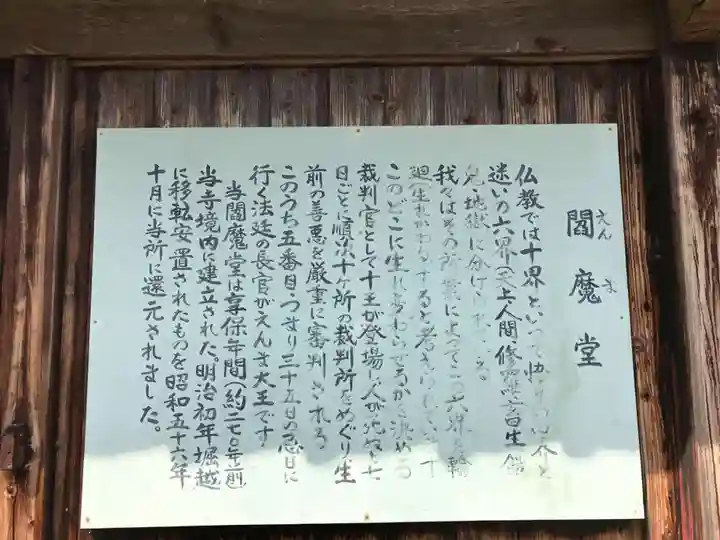 閻魔堂
えんま
仏教では十界といって悟りの四界と
迷いの六界(天上人間修羅畜生餓
鬼地獄に分けられている。
我々はその所業によってこの六界を輪
廻(生れかわる)すると考えられている
このどこに生れ変わらせるかを決める
裁判官として十王が登場し人が死ぬと七
日ごとに順次十ヶ所の裁判所をめぐり、生
前の善悪を厳重に審判される。
このうち五番目、つまり三十五日の忌日に
行く法廷の長官がえんま大王です
当閻魔堂は享保年間(約二七〇年前)
当寺境内に建立された。明治初年堀越
に移転安置されたものを昭和五十六年
十月に当所に還元されました。